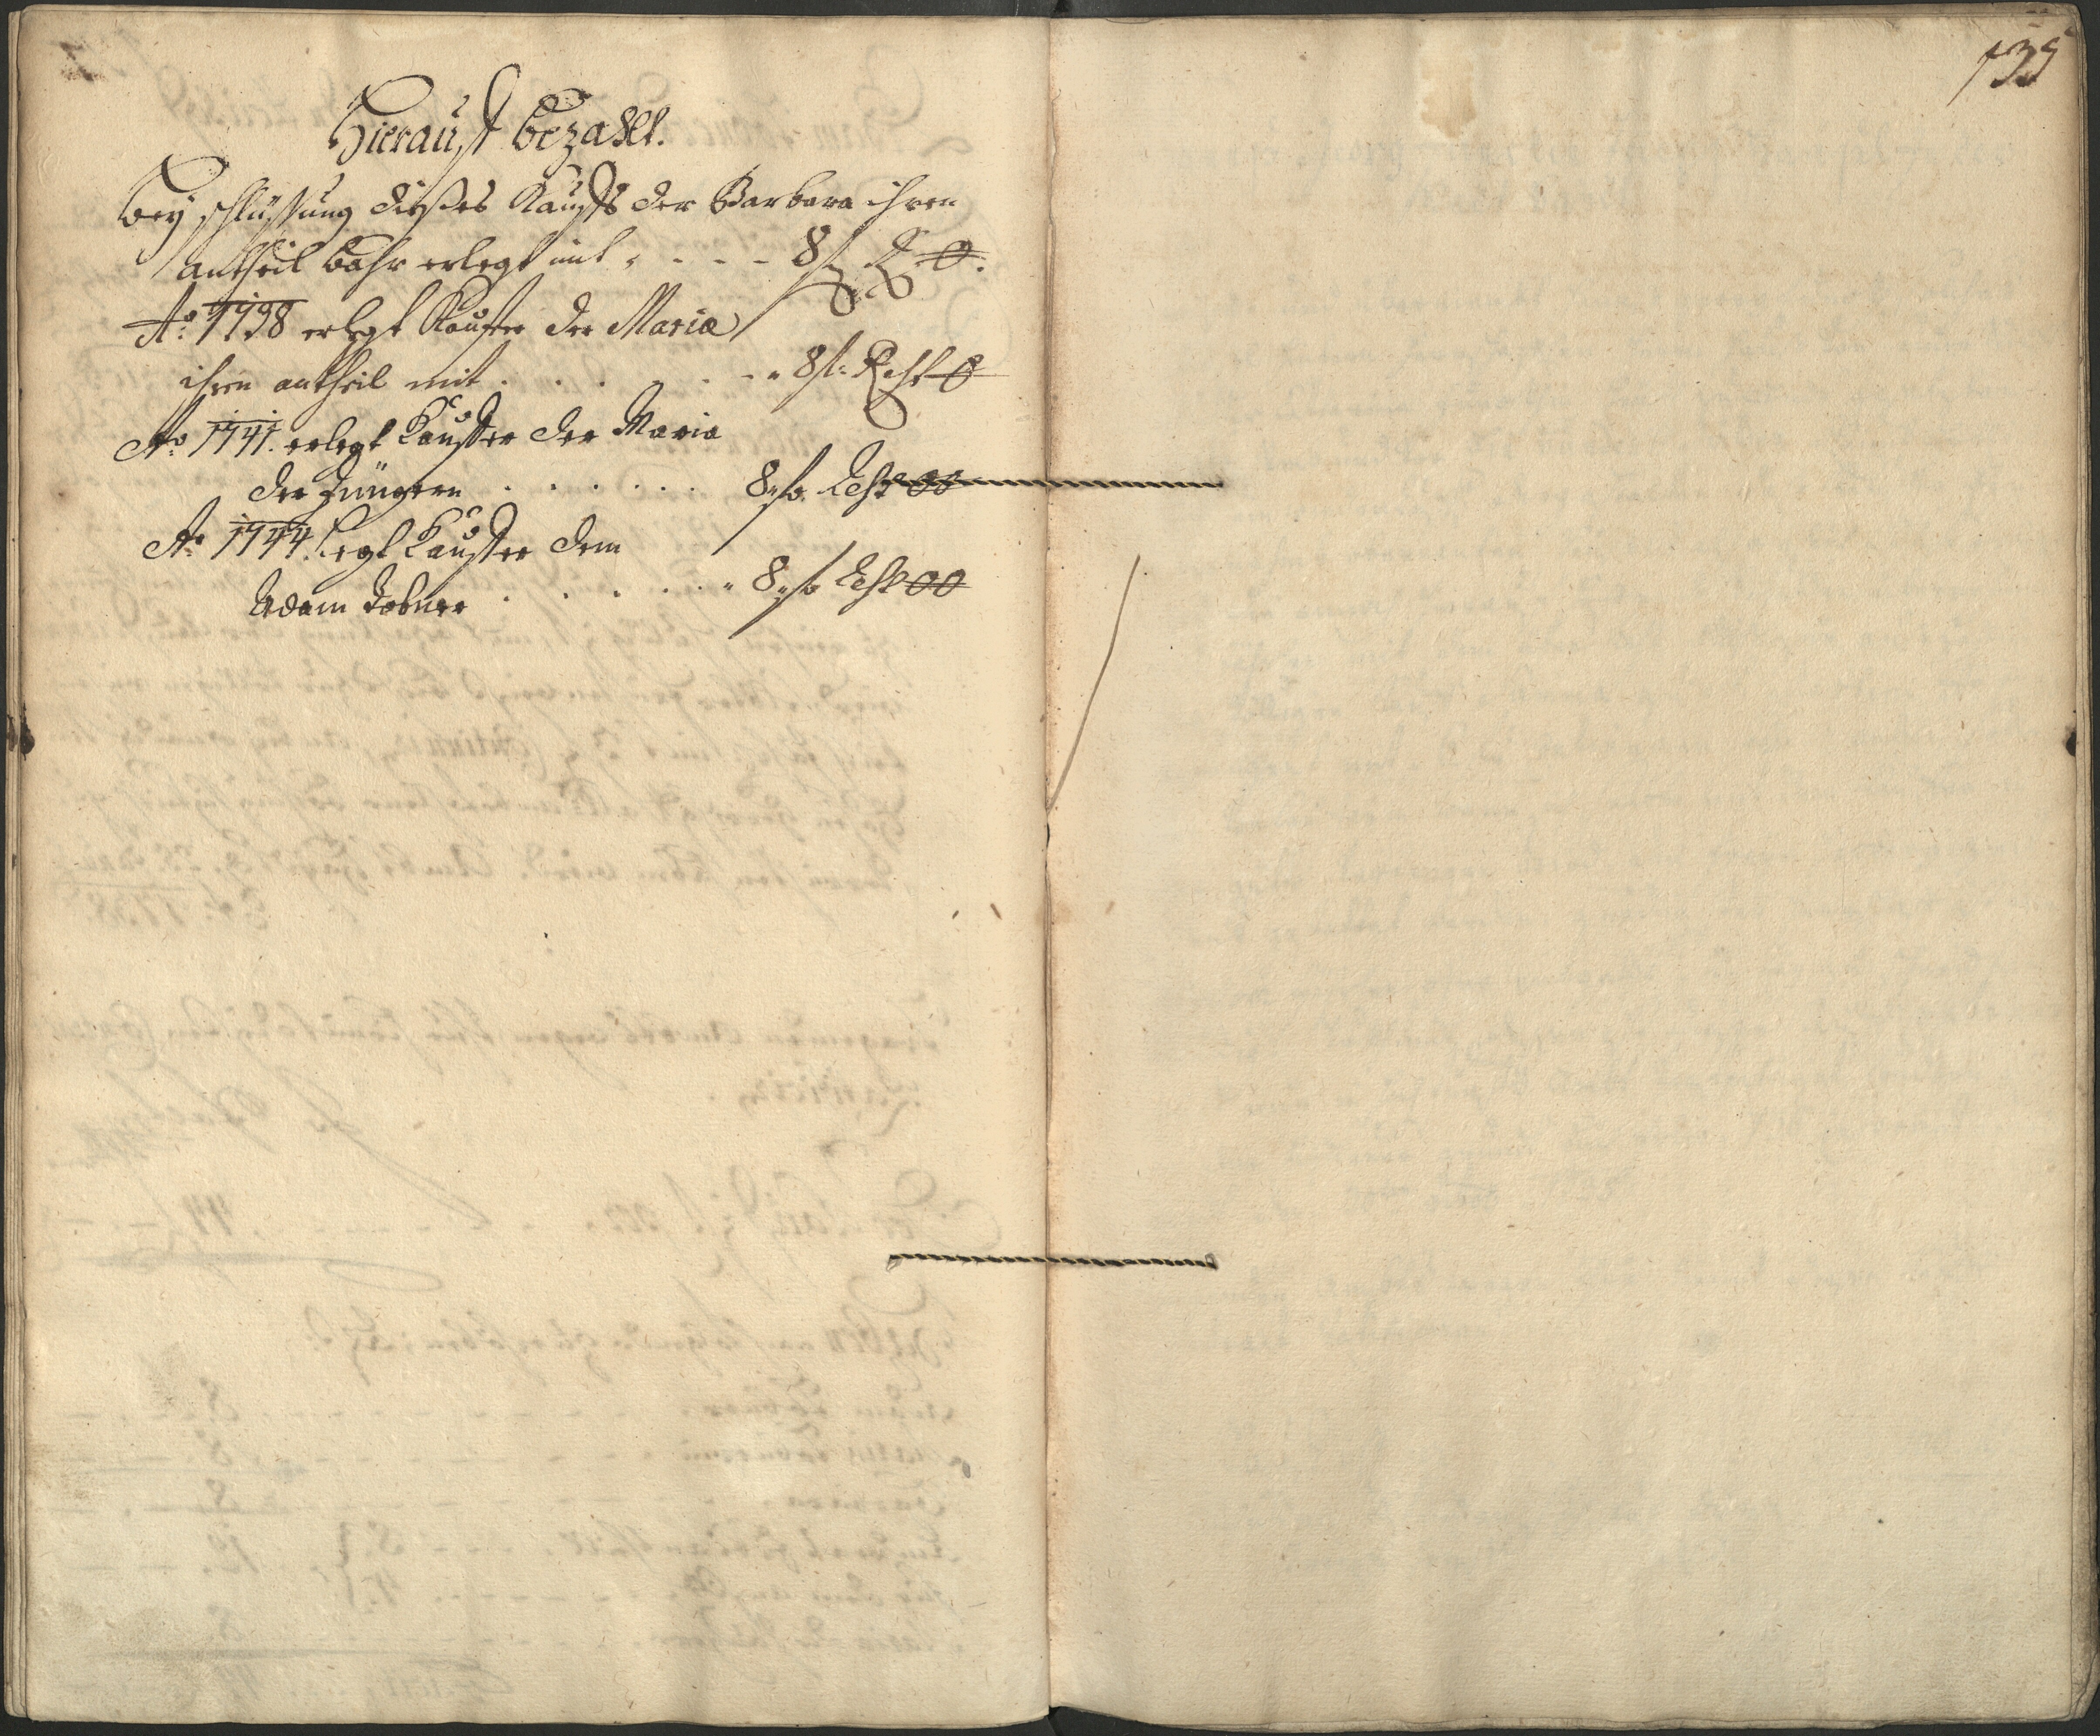 Hierauf bezahlt.
Beÿ schlüssung dießes Kauffs der Barbara ihren
antheil bahr erlegt mit - - - 8 f R 0.
Ao: 1738 erlegt Kauffer der Maria
ihren antheil mit . . . . . 8 f: Rest 0
Ao 1741. erlegt Kauffer der Maria
der Jüngern . . . . . . 8 f. Rest 00
Ao 1744. legt Kauffer dem
Adam Tobner . . . . . 8 f Rest 00
135